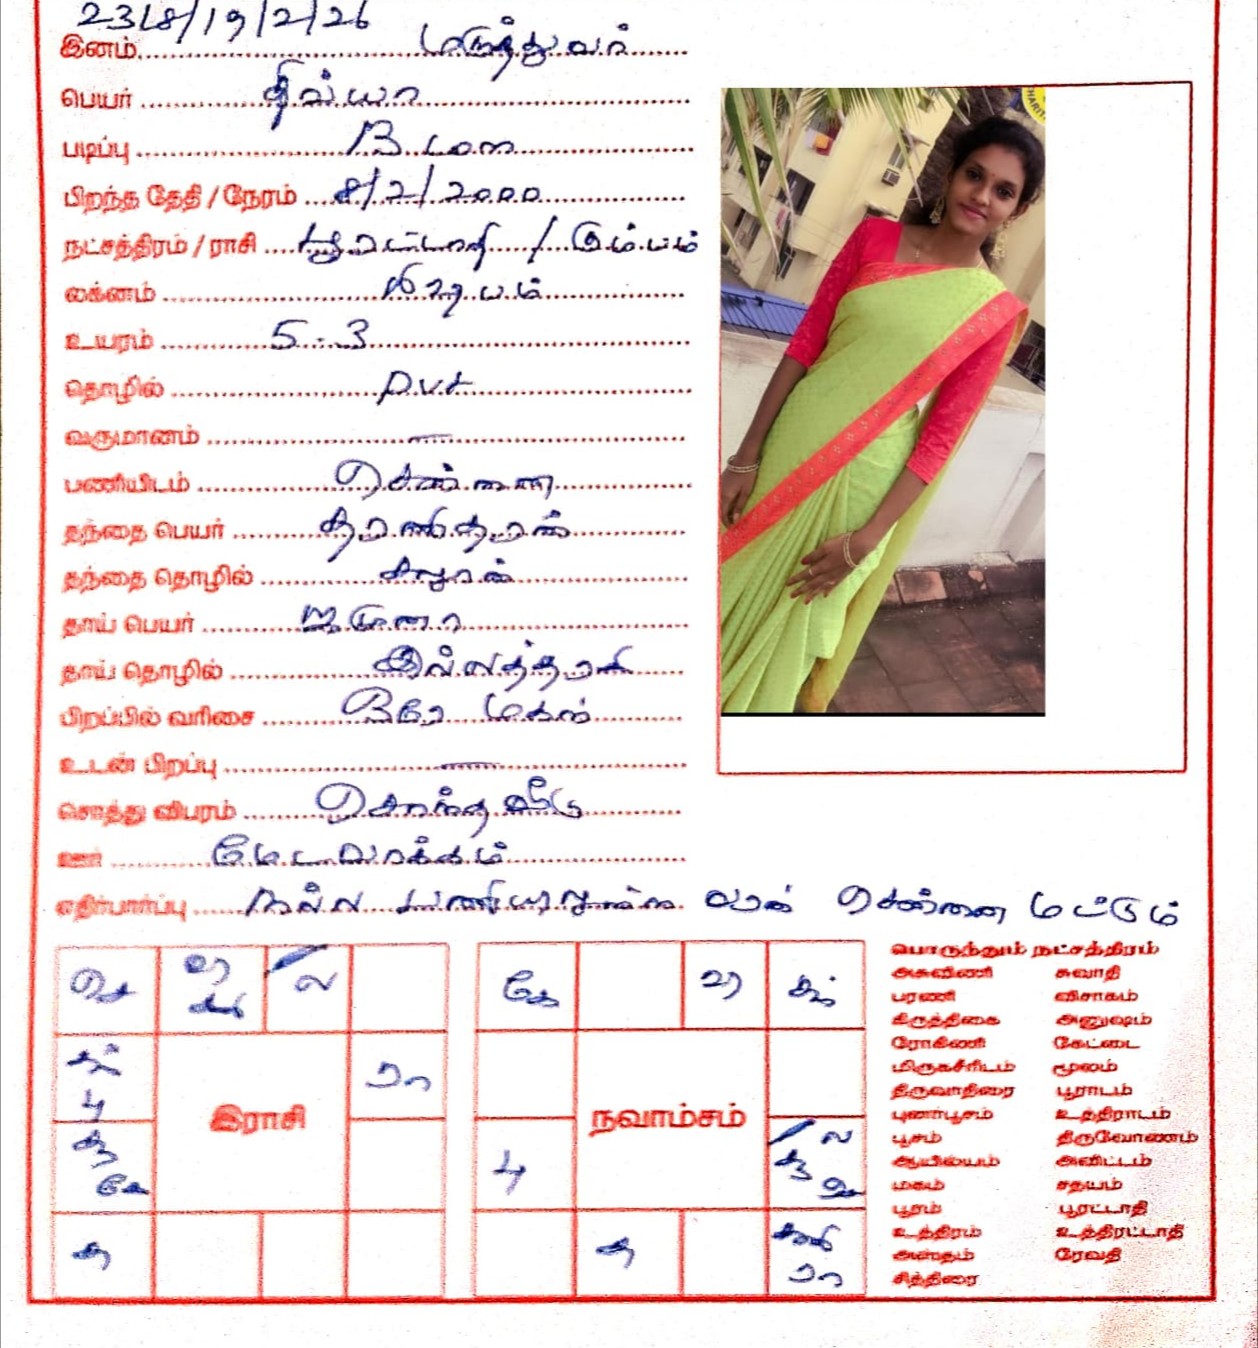 2318/19/2/26
இனம் மருத்துவர்
பெயர் திவ்யா
படிப்பு B.com
பிறந்த தேதி / நேரம் 8/2/2000
நட்சத்திரம் / ராசி பூரட்டாதி / கும்பம்
லக்னம் ரிஷபம்
உயரம் 5.3
தொழில் Pvt
வருமானம் —
பணியிடம் சென்னை
தந்தை பெயர் தரணிதரன்
தந்தை தொழில்
தாய் பெயர் ஜமுனா
தாய் தொழில் இல்லத்தரசி
பிறப்பில் வரிசை ஒரே மகள்
உடன் பிறப்பு —
சொத்து விபரம் சொந்த வீடு
ஊர் மேடவாக்கம்
எதிர்பார்ப்பு நல்ல பணியிலுள்ள வரன் சென்னை மட்டும்
செ
ல
கே
சுக்
சூ
கே
பு
ரா
இராசி
நவாம்சம்
பு
ல
பொருந்தும் நட்சத்திரம்
அசுவினி சுவாதி
பரணி விசாகம்
கிருத்திகை அனுஷம்
ரோகிணி கேட்டை
மிருகசீரிடம் மூலம்
திருவாதிரை பூராடம்
புனர்பூசம் உத்திராடம்
பூசம் திருவோணம்
ஆயில்யம் அவிட்டம்
மகம் சதயம்
பூரம் பூரட்டாதி
உத்திரம் உத்திரட்டாதி
அஸ்தம் ரேவதி
சித்திரை